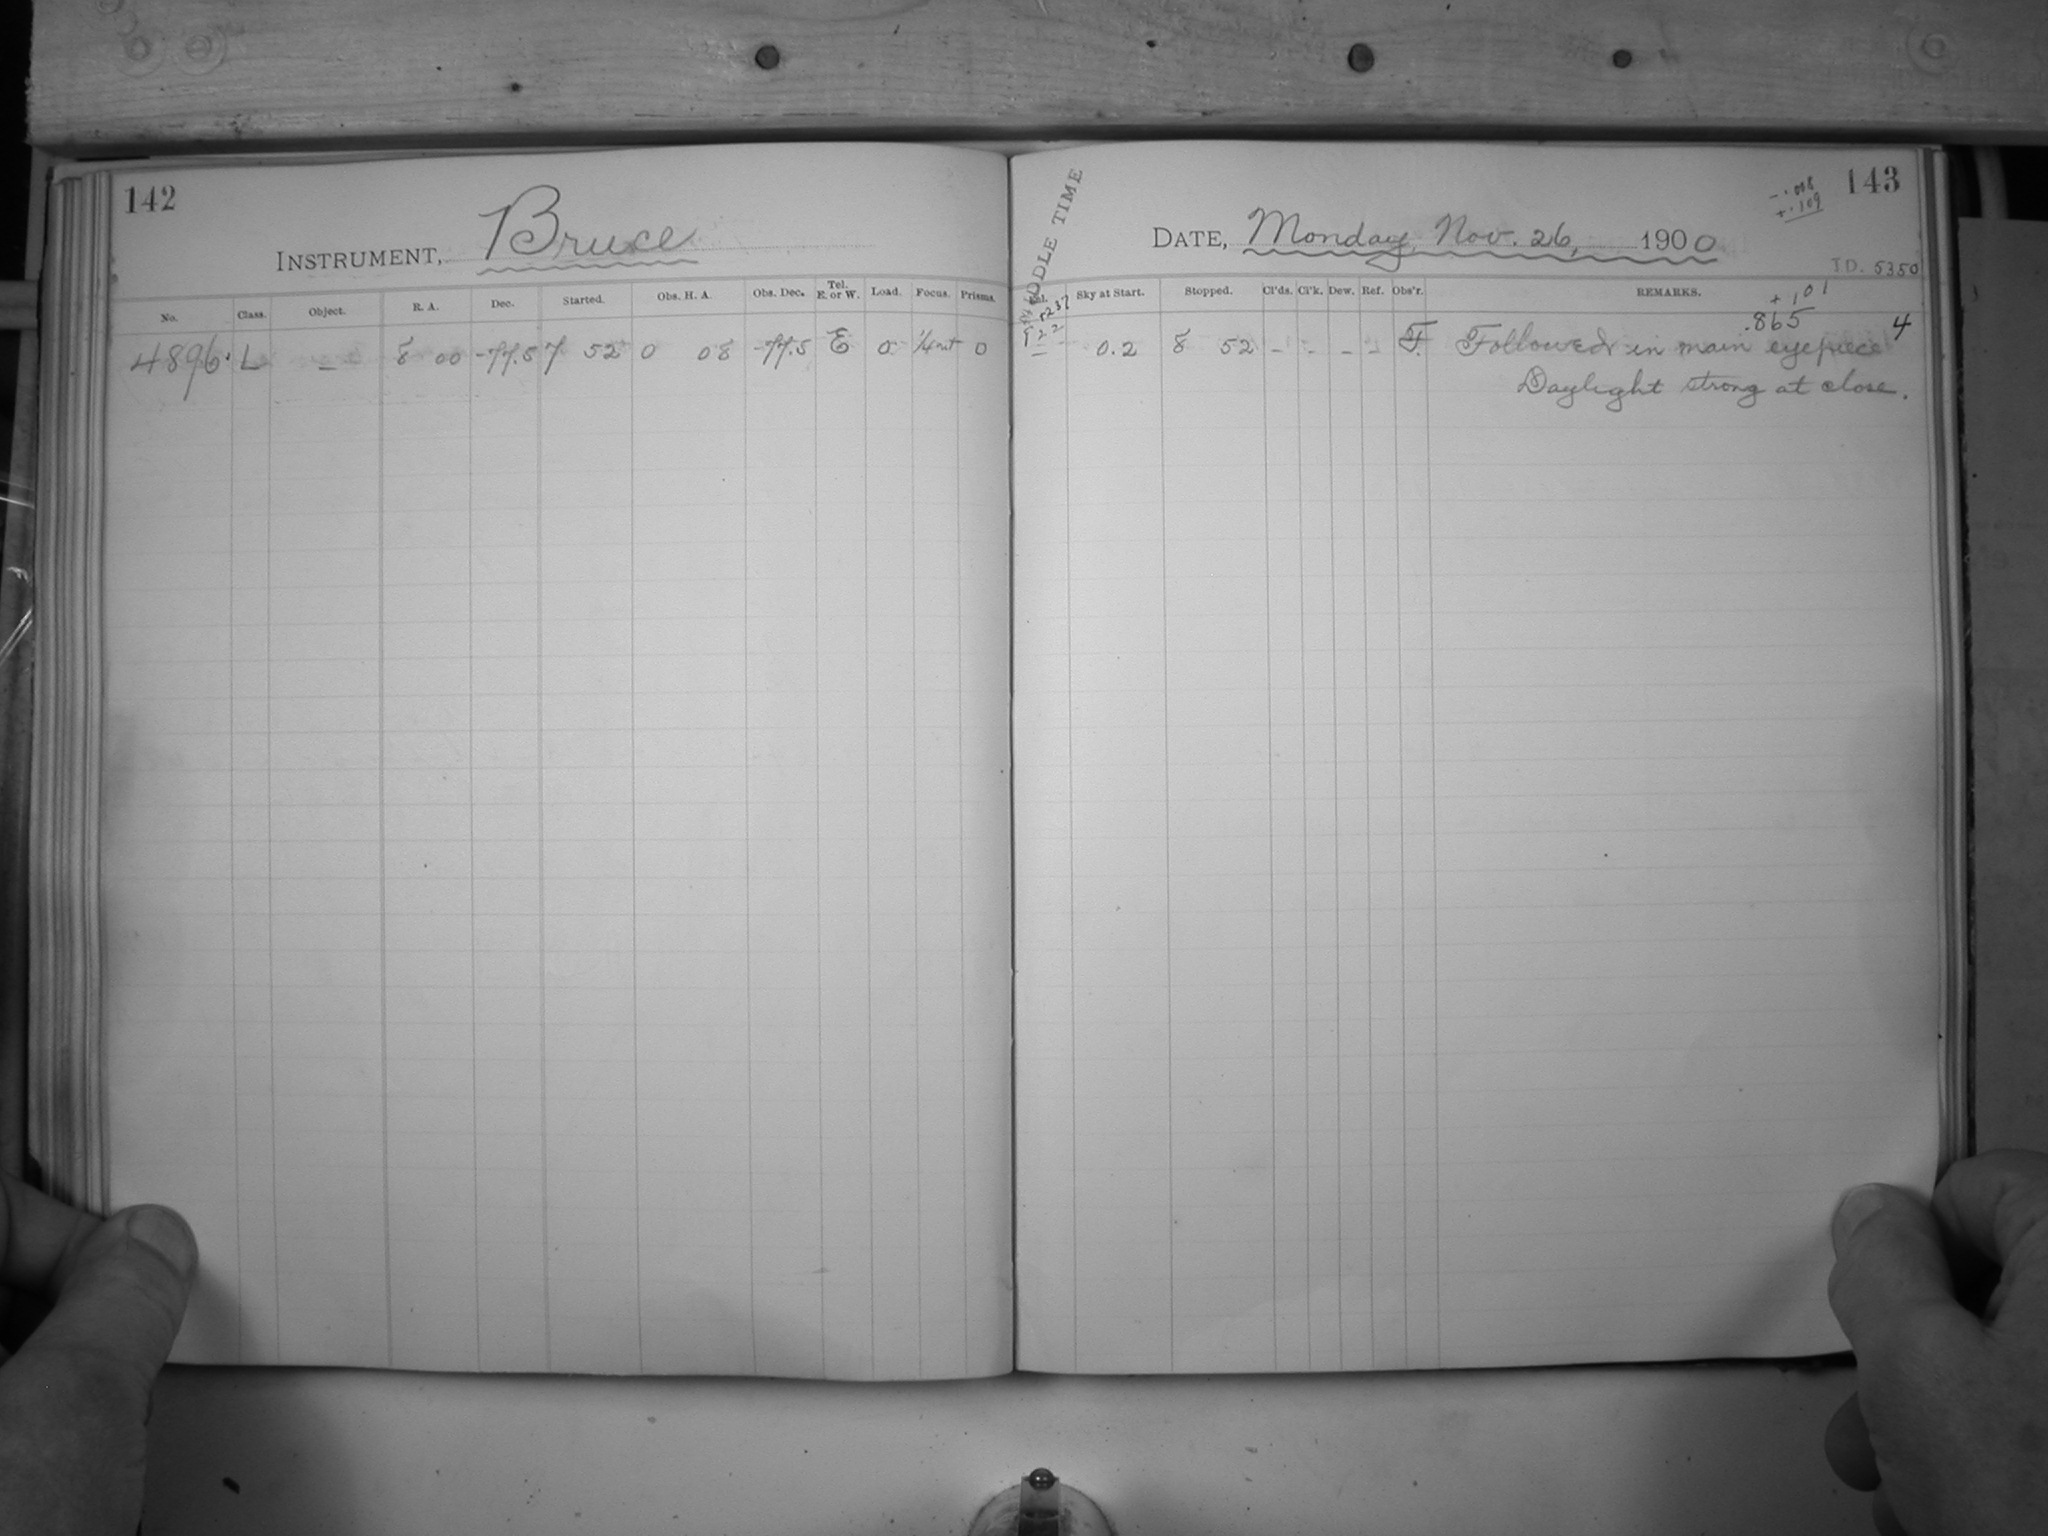 142
INSTRUMENT, Bruce
No. Class. Object. R. A. Dec. Started. Obs. H. A. Obs. Dec. Tel. E. or W. Load. Focus. Prisms.
4896 L — 8 00 -77.5 7 52 0 08 -77.5 E 0 0
DLE TIME
143
-.008
+.109
DATE, Monday, Nov. 26, 1900
J.D. 5350
Sky at Start. Stopped. Cl'ds. Cl'k. Dew. Ref. Obs'r. REMARKS.
+ .101
.865 4
0.2 8 52 - - - - F. Followed in main eyepiece
Daylight strong at close.